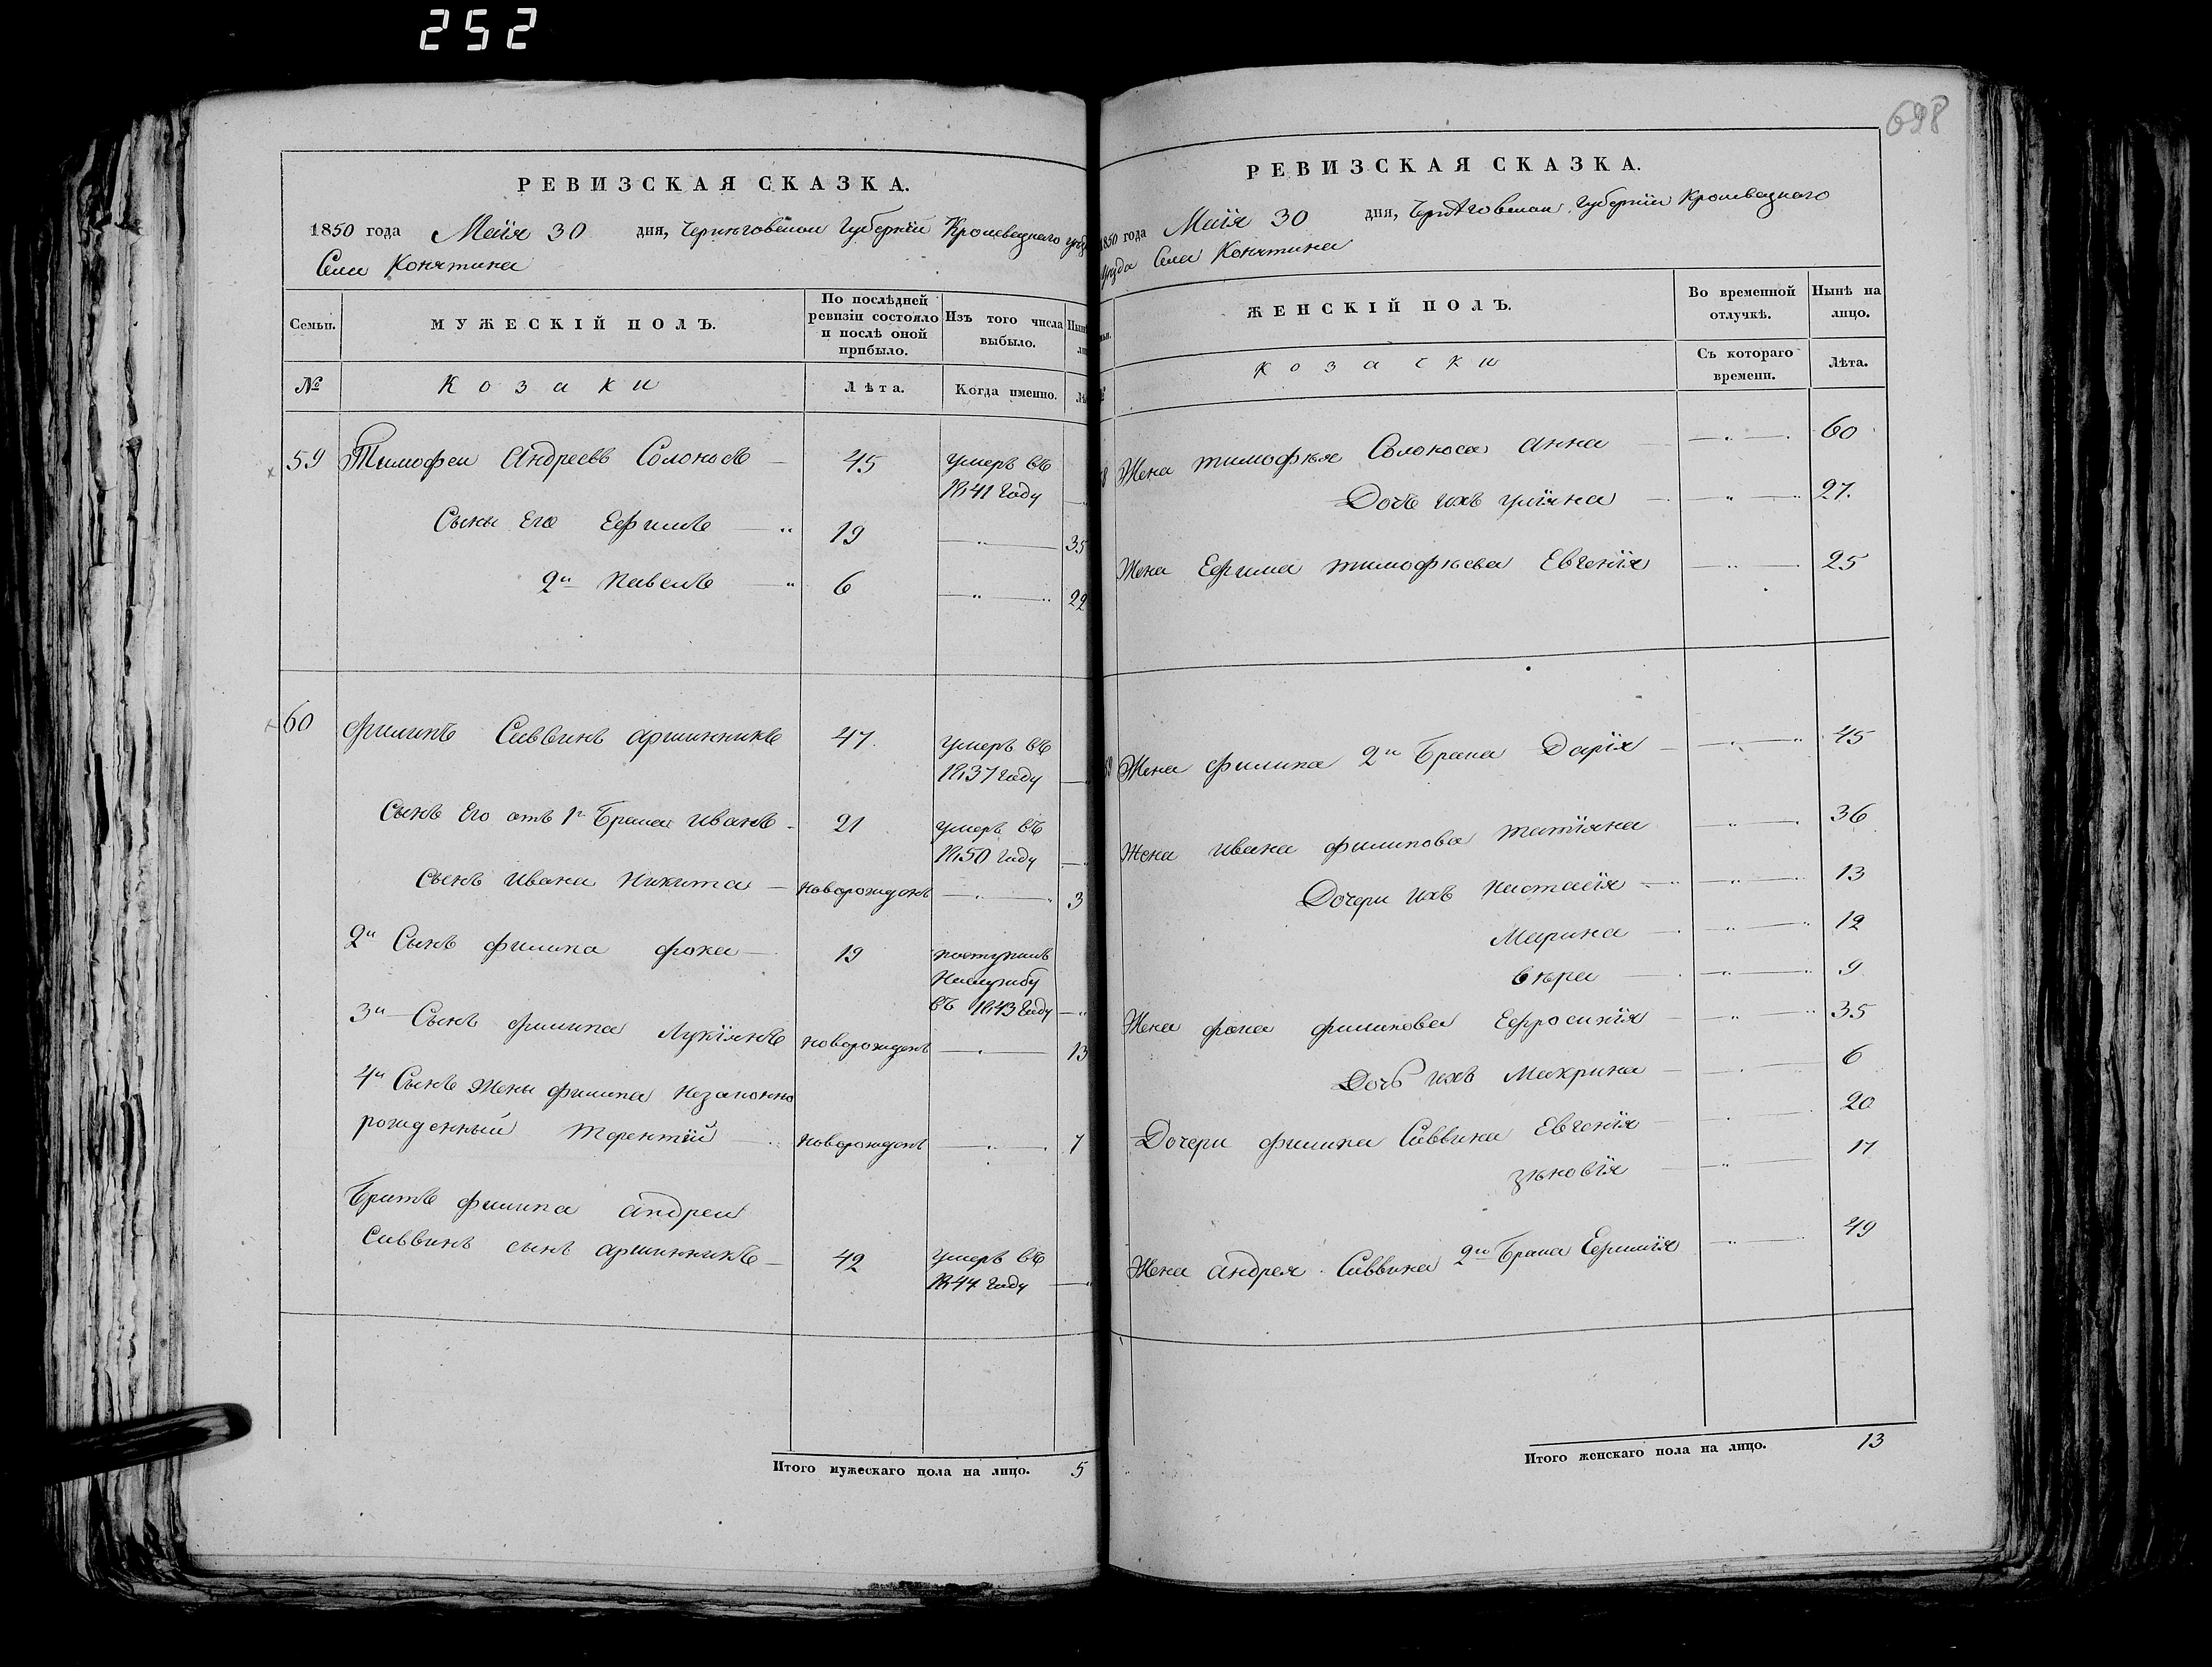 252
698
РЕВИЗСКАЯ СКАЗКА.
1850 года Маія 30 дня, Черниговской Губерніи Кролевецкого
Села Конятина
Семьи. МУЖЕСКІЙ ПОЛЪ. По послѣдней ревизіи состояло и послѣ оной прибыло. Изъ того числа выбыло.
№ Козаки Лѣта. Когда именно.
59 Тимофеи Андреевъ Солокосъ 45 умеръ въ
1841 году
Сыны Его Ефимъ 19 35
2й Павелъ 6 22
60 Филипъ Саввинъ аршинникъ 47 умеръ въ
1837 году
Сынъ Его отъ 1го Брака иванъ 21 умеръ въ
1850 году
Сынъ ивана Никита новорожденъ 3
2й Сынъ филипа фока 19 поступилъ
Наслужбу
въ 1843 Году
3й Сынъ филипа Лукіянъ новорожденъ 13
4й Сынъ жены филипа незаконно
рожденный терентій новорожденъ 7
Братъ филипа андреи
Саввинъ сынъ аршинникъ 42 умеръ въ
1844 году
Итого мужескаго пола на лицо. 5
РЕВИЗСКАЯ СКАЗКА.
1850 года Маія 30 дня, Черниговской Губерніи Кролевецкаго
уезда Села Конятина
ЖЕНСКІЙ ПОЛЪ. Во временной отлучкѣ. Нынѣ на лицо.
Козачки Съ котораго времени. Лѣта.
Жена тимофѣя Солокоса анна 60
Дочь ихъ уліяна 27.
Жена Ефима тимофѣева Евгенія 25
Жена филипа 2го Брака Дарія 45
Жена ивана филипова татіяна 36
Дочери ихъ настасія 13
Марина 12
вѣра 9
Жена фоки филипова Ефросинія 35
Дочь ихъ Макрина 6
Дочери филипа Саввина Евгенія 20
зѣновія 17
Жена андрея Саввина 2го Брака Ефимія 49
Итого женскаго пола на лицо. 13